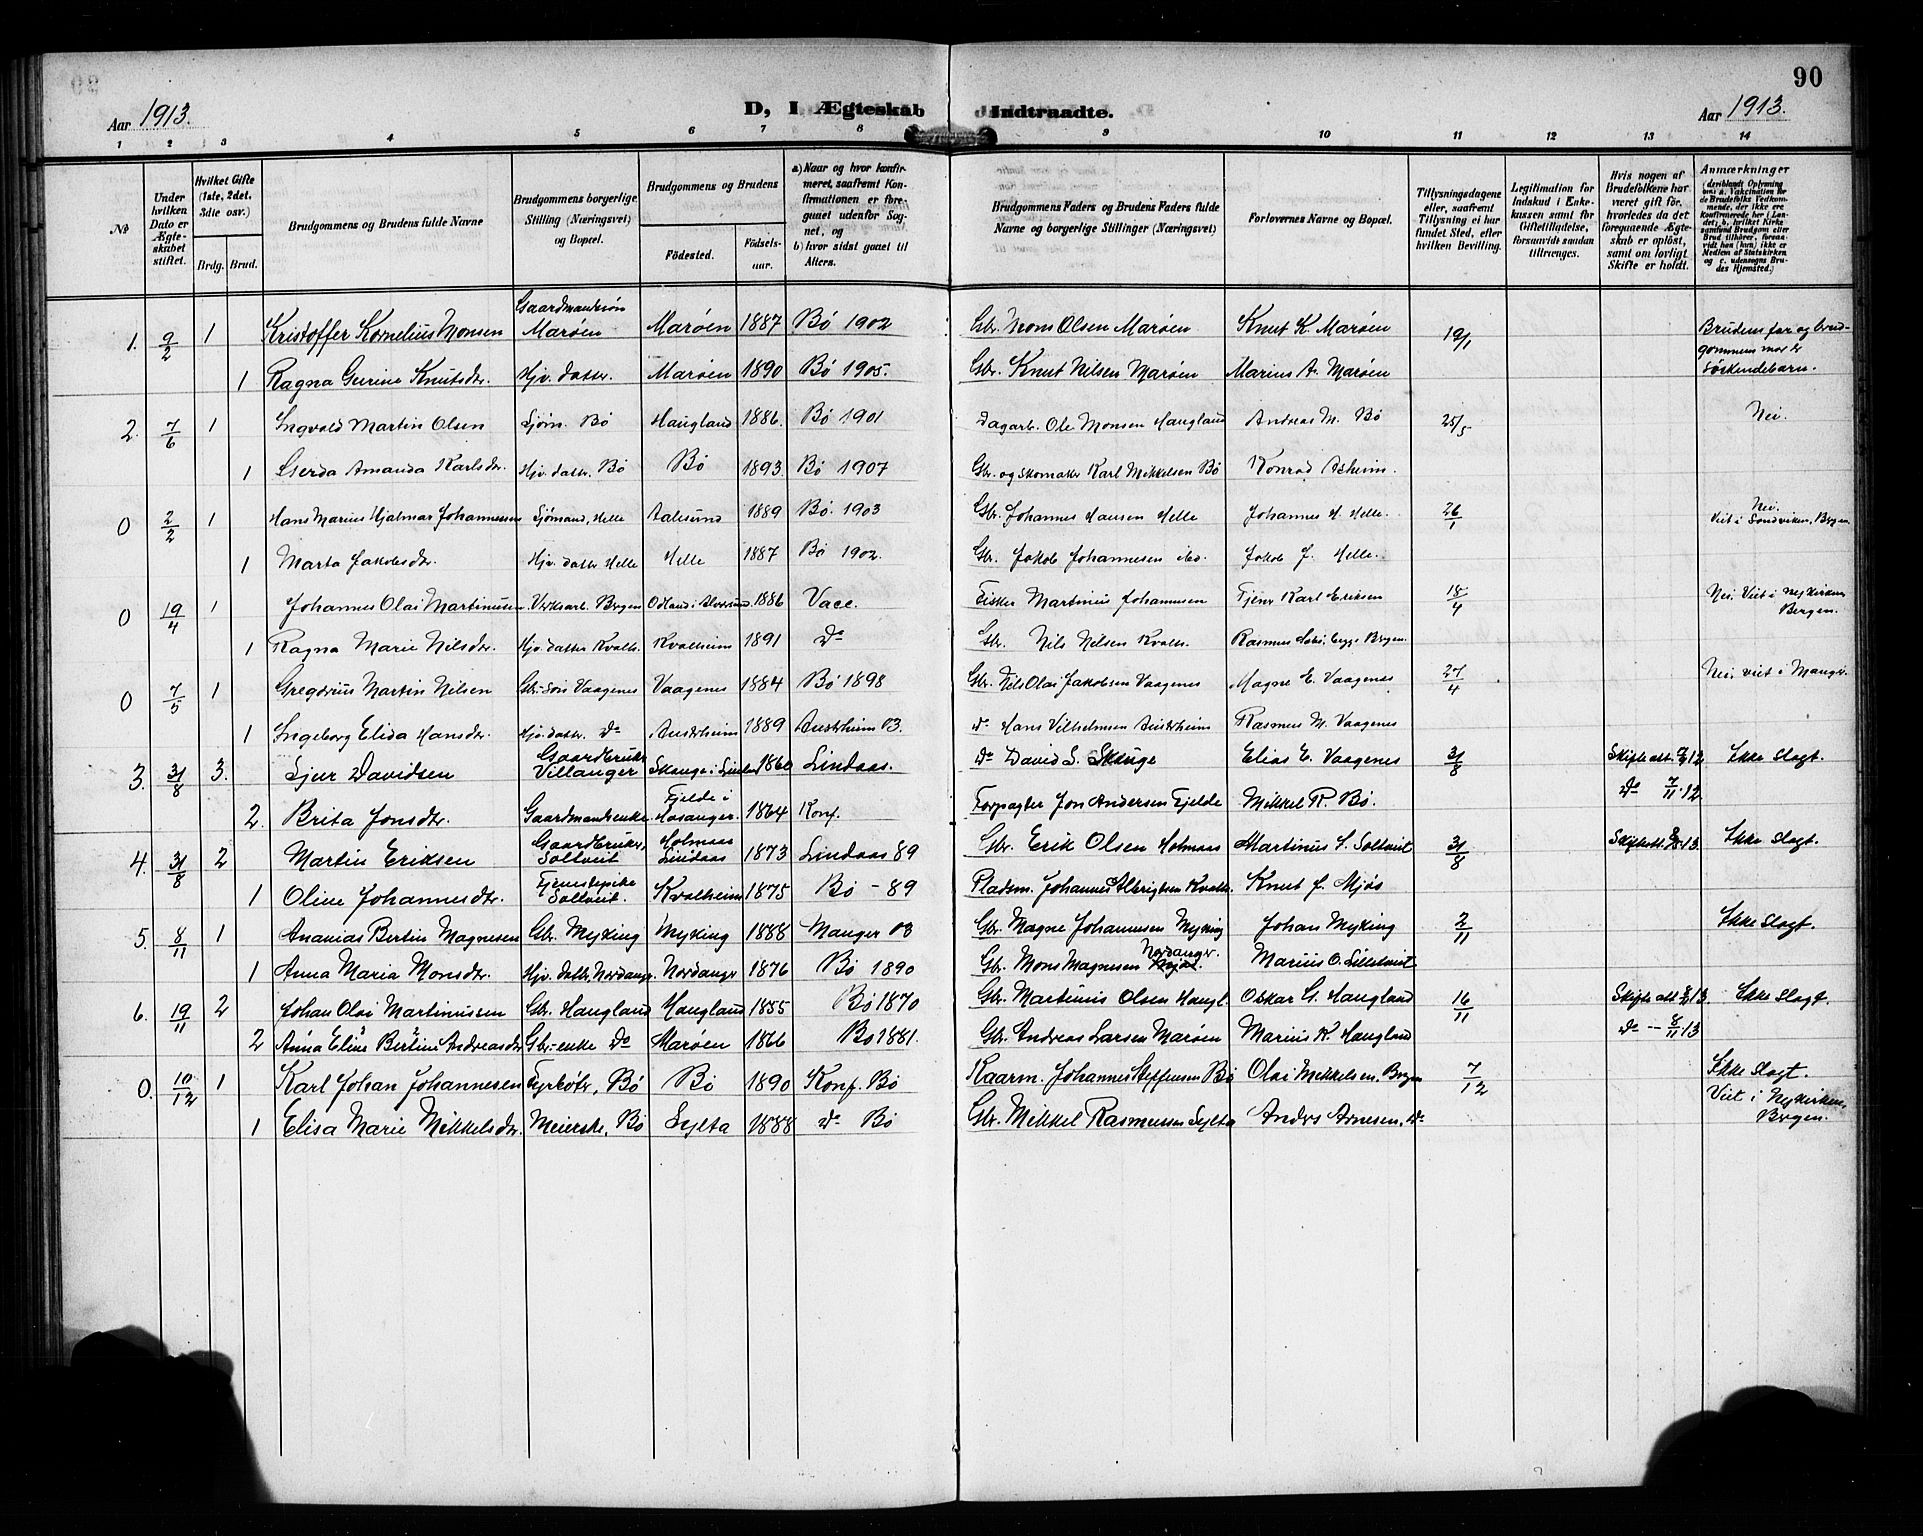 90
Aar 1913.
D, I. Ægteskab Indtraadte.
Aar 1913.
1 2 3 4 5 6 7 8 9 10 11 12 13 14
№
Under hvilken Dato er Ægteskabet stiftet.
Hvilket Gifte (1ste, 2det, 3die osv.)
Brdg. Brud.
Brudgommens og Brudens fulde Navne
Brudgommens borgerlige Stilling (Næringsvei) og Bopæl.
Brudgommens og Brudens
Fødested.
Fødselsaar.
a) Naar og hvor konfirmeret, saafremt Konfirmationen er foregaaet udenfor Sognet, og
b) hvor sidst gaaet til Alters.
Brudgommens Faders og Brudens Faders fulde Navne og borgerlige Stillinger (Næringsvei)
Forlovernes Navne og Bopæl.
Tillysningsdagene eller, saafremt Tillysning ei har fundet Sted, efter hvilken Bevilling.
Legitimation for Indskud i Enkekassen samt for Giftetilladelse, forsaavidt saadan tiltrænges.
Hvis nogen af Brudefolkene har været gift før, hvorledes da det foregaaende Ægteskab er opløst, samt om lovligt Skifte er holdt.
Anmærkninger
(deriblandt Oplysning om: a. Vakcination for de Brudefolks Vedkommende, der ikke ere konfirmerede her i Landet; b. hvilket Kirkesamfund Brudgom eller Brud tilhører, forsaavidt han (hun) ikke er Medlem af Statskirken og c. udensogns Brudes Hjemsted.)
1. 9/2 1 Kristoffer Kornelius Monsen Gaardmandssøn Marøen Marøen 1887 Bø 1902 Gbr. Mons Olsen Marøen Knut K. Marøen 19/1 Brudens far og brudgommens mor er Søskendebarn.
1 Ragna Gurine Knutsdtr. Hjv. datter. Marøen 1890 Bø 1905. Gbr. Knut Nilsen Marøen Marius A. Marøen
2. 7/6 1 Ingvald Martin Olsen Sjøm. Bø Haugland 1886. Bø 1901 Dagarb. Ole Monsen Haugland Andreas M. Bø 25/5 Nei.
1 Gerda Amanda Karlsdtr. Hjv. datter. Bø Bø 1893. Bø 1907 Gbr. og skomaker Karl Mikkelsen Bø Konrad Asheim.
0 2/2 1 Hans Marius Hjalmar Johannessen Sjømand, Helle Aalesund 1889 Bø. 1903 Gbr. Johannes Hansen Helle Johannes H. Helle. 26/1 Nei. Viet i Sandviken, Bergen.
1 Marta Jakobsdtr. Hjv. datter Helle Helle 1887 Bø 1902. Gbr. Jakob Johannesen ibd. Jakob J. Helle.
0 19/4 1 Johannes Olai Martinussen. Verksarb. Bergen Odland i Alversund 1886 Vace. Fisker Martinus Johannesen Tjener Karl Eriksen 18/4 Nei. Viet i Nykirken, Bergen.
1 Ragna Marie Nilsdtr. Hjv. datter Kvalh. Kvalheim 1891 do Gbr. Nils Nilsen Kvalh. Rasmus Bergen.
0 7/5 1 Gregorius Martin Nilsen Gbr.-søn Vaagenes Vaagenes 1884 Bø 1898 Gbr. Nils Olai Jakobsen Vaagenes Magne E. Vaagenes 27/4 Nei, viet i Manger.
1 Ingeborg Elida Hansdtr. Hjv. datter. do Austrheim 1889 Austrheim 03. do Hans Vilhelmsen Austrheim Rasmus M. Vaagenes
3. 31/8 3. Sjur Davidsen Gaardbruker Villanger Skauge i Lindaas 1860 Lindaas. do David S. Skauge Elias E. Vaagenes 31/8 Skifte att. 12 Ikke slegt.
2. Brita Jonsdtr. Gaardmandsenke. Fjelde i Hosanger. 1864 Konf. Forpagter Jon Andersen Fjelde Mikkel R. Bø. do 7/11.12
4. 31/8 2 Martin Eriksen Gaardbruker, Soltveit Holmaas Lindaas 1873 Lindaas 89 Gbr. Erik Olsen Holmaas Martinus S. Soltveit 31/8 Skifteatt. 13. Ikke slegt.
1 Oline Johannesdtr. Tjenestepike Soltveit. Kvalheim 1875 Bø - 89 Pladsm. Johannes Albrigtsen Kvalh. Knut J. Mjøs
5. 8/11 1 Ananias Bertin Magnesen Gbr. Myking Myking 1888 Manger 03 Gbr. Magne Johannesen Myking Johan Myking 2/11 Ikke slegt.
1 Anna Maria Monsdtr. Hjv. datter Nordanger. Nordanger 1876 Bø 1890 Gbr. Mons Magnesen Nordanger. Marius O. Lilletveit
6. 19/11 2 Johan Olai Martinussen Gbr. Haugland Haugland 1855 Bø 1870 Gbr. Martinus Olsen Haugl. Oskar G. Haugland 16/11 Skifte att. 13. Ikke slegt.
2 Anna Eline Bertine Andreasdtr. Gbr.-enke do Marøen 1866 Bø 1881. Gbr. Andreas Larsen Marøen Marius K. Haugland do - 8/11 13
0. 10/12 1 Karl Johan Johannesen Fyrbøter, Bø Bø 1890 Konf. Bø Kaarm. Johannes Steffensen Bø Olai Mikkelsen, Bergen 7/12 Ikke slegt. Viet i Nykirken, Bergen.
1 Elisa Marie Mikkelsdtr. Meierske, Bø Sylta 1888 do Bø Gbr. Mikkel Rasmussen Sylta Anders Arnesen, do